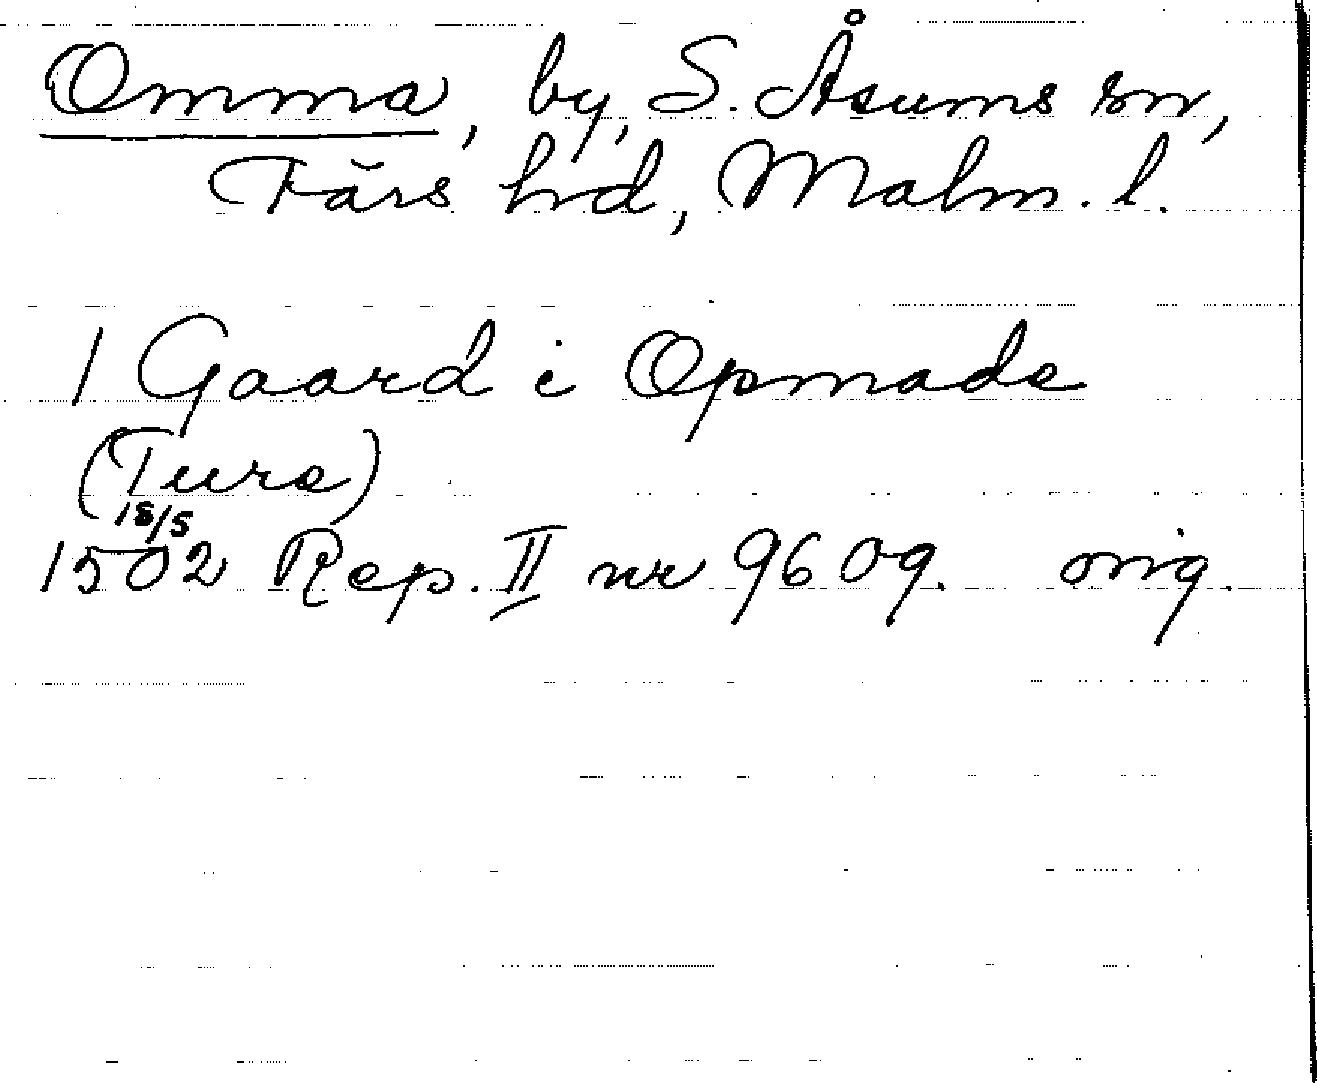 Omma, by, S. Åsums sn,
Färs hd, Malm. l.
1 Gaard i Opmade
(Ture)
15/5
1502 Rep. II nr 9609. orig.